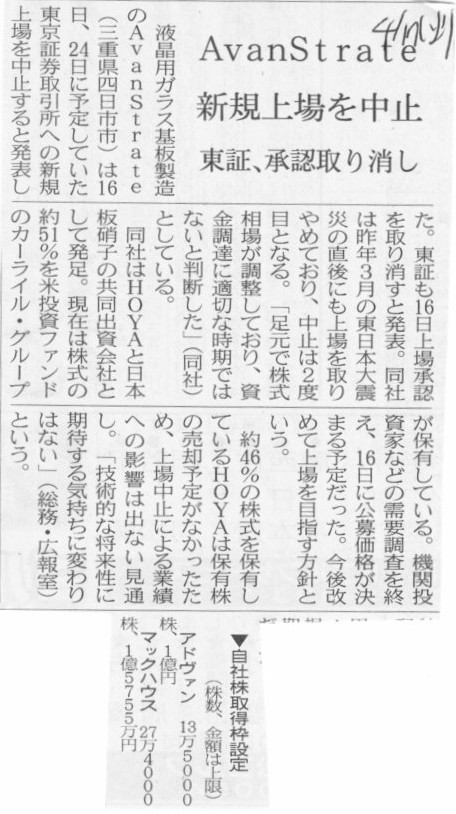 4/17
AvanStrate
新規上場を中止
東証、承認取り消し
液晶用ガラス基板製造
のAvanStrate
（三重県四日市市）は16
日、24日に予定していた
東京証券取引所への新規
上場を中止すると発表し
た。東証も16日上場承認
を取り消すと発表。同社
は昨年３月の東日本大震
災の直後にも上場を取り
やめており、中止は２度
目となる。「足元で株式
相場が調整しており、資
金調達に適切な時期では
ないと判断した」（同社）
としている。
同社はHOYAと日本
板硝子の共同出資会社と
して発足。現在は株式の
約51％を米投資ファンド
のカーライル・グループ
が保有している。機関投
資家などの需要調査を終
え、16日に公募価格が決
まる予定だった。今後改
めて上場を目指す方針と
いう。
約46％の株式を保有し
ているHOYAは保有株
の売却予定がなかったた
め、上場中止による業績
への影響は出ない見通
し。「技術的な将来性に
期待する気持ちに変わり
はない」（総務・広報室）
という。
▼自社株取得枠設定
（株数、金額は上限）
アドヴァン　13万5000
株、1億円
マックハウス　27万4000
株、1億5755万円